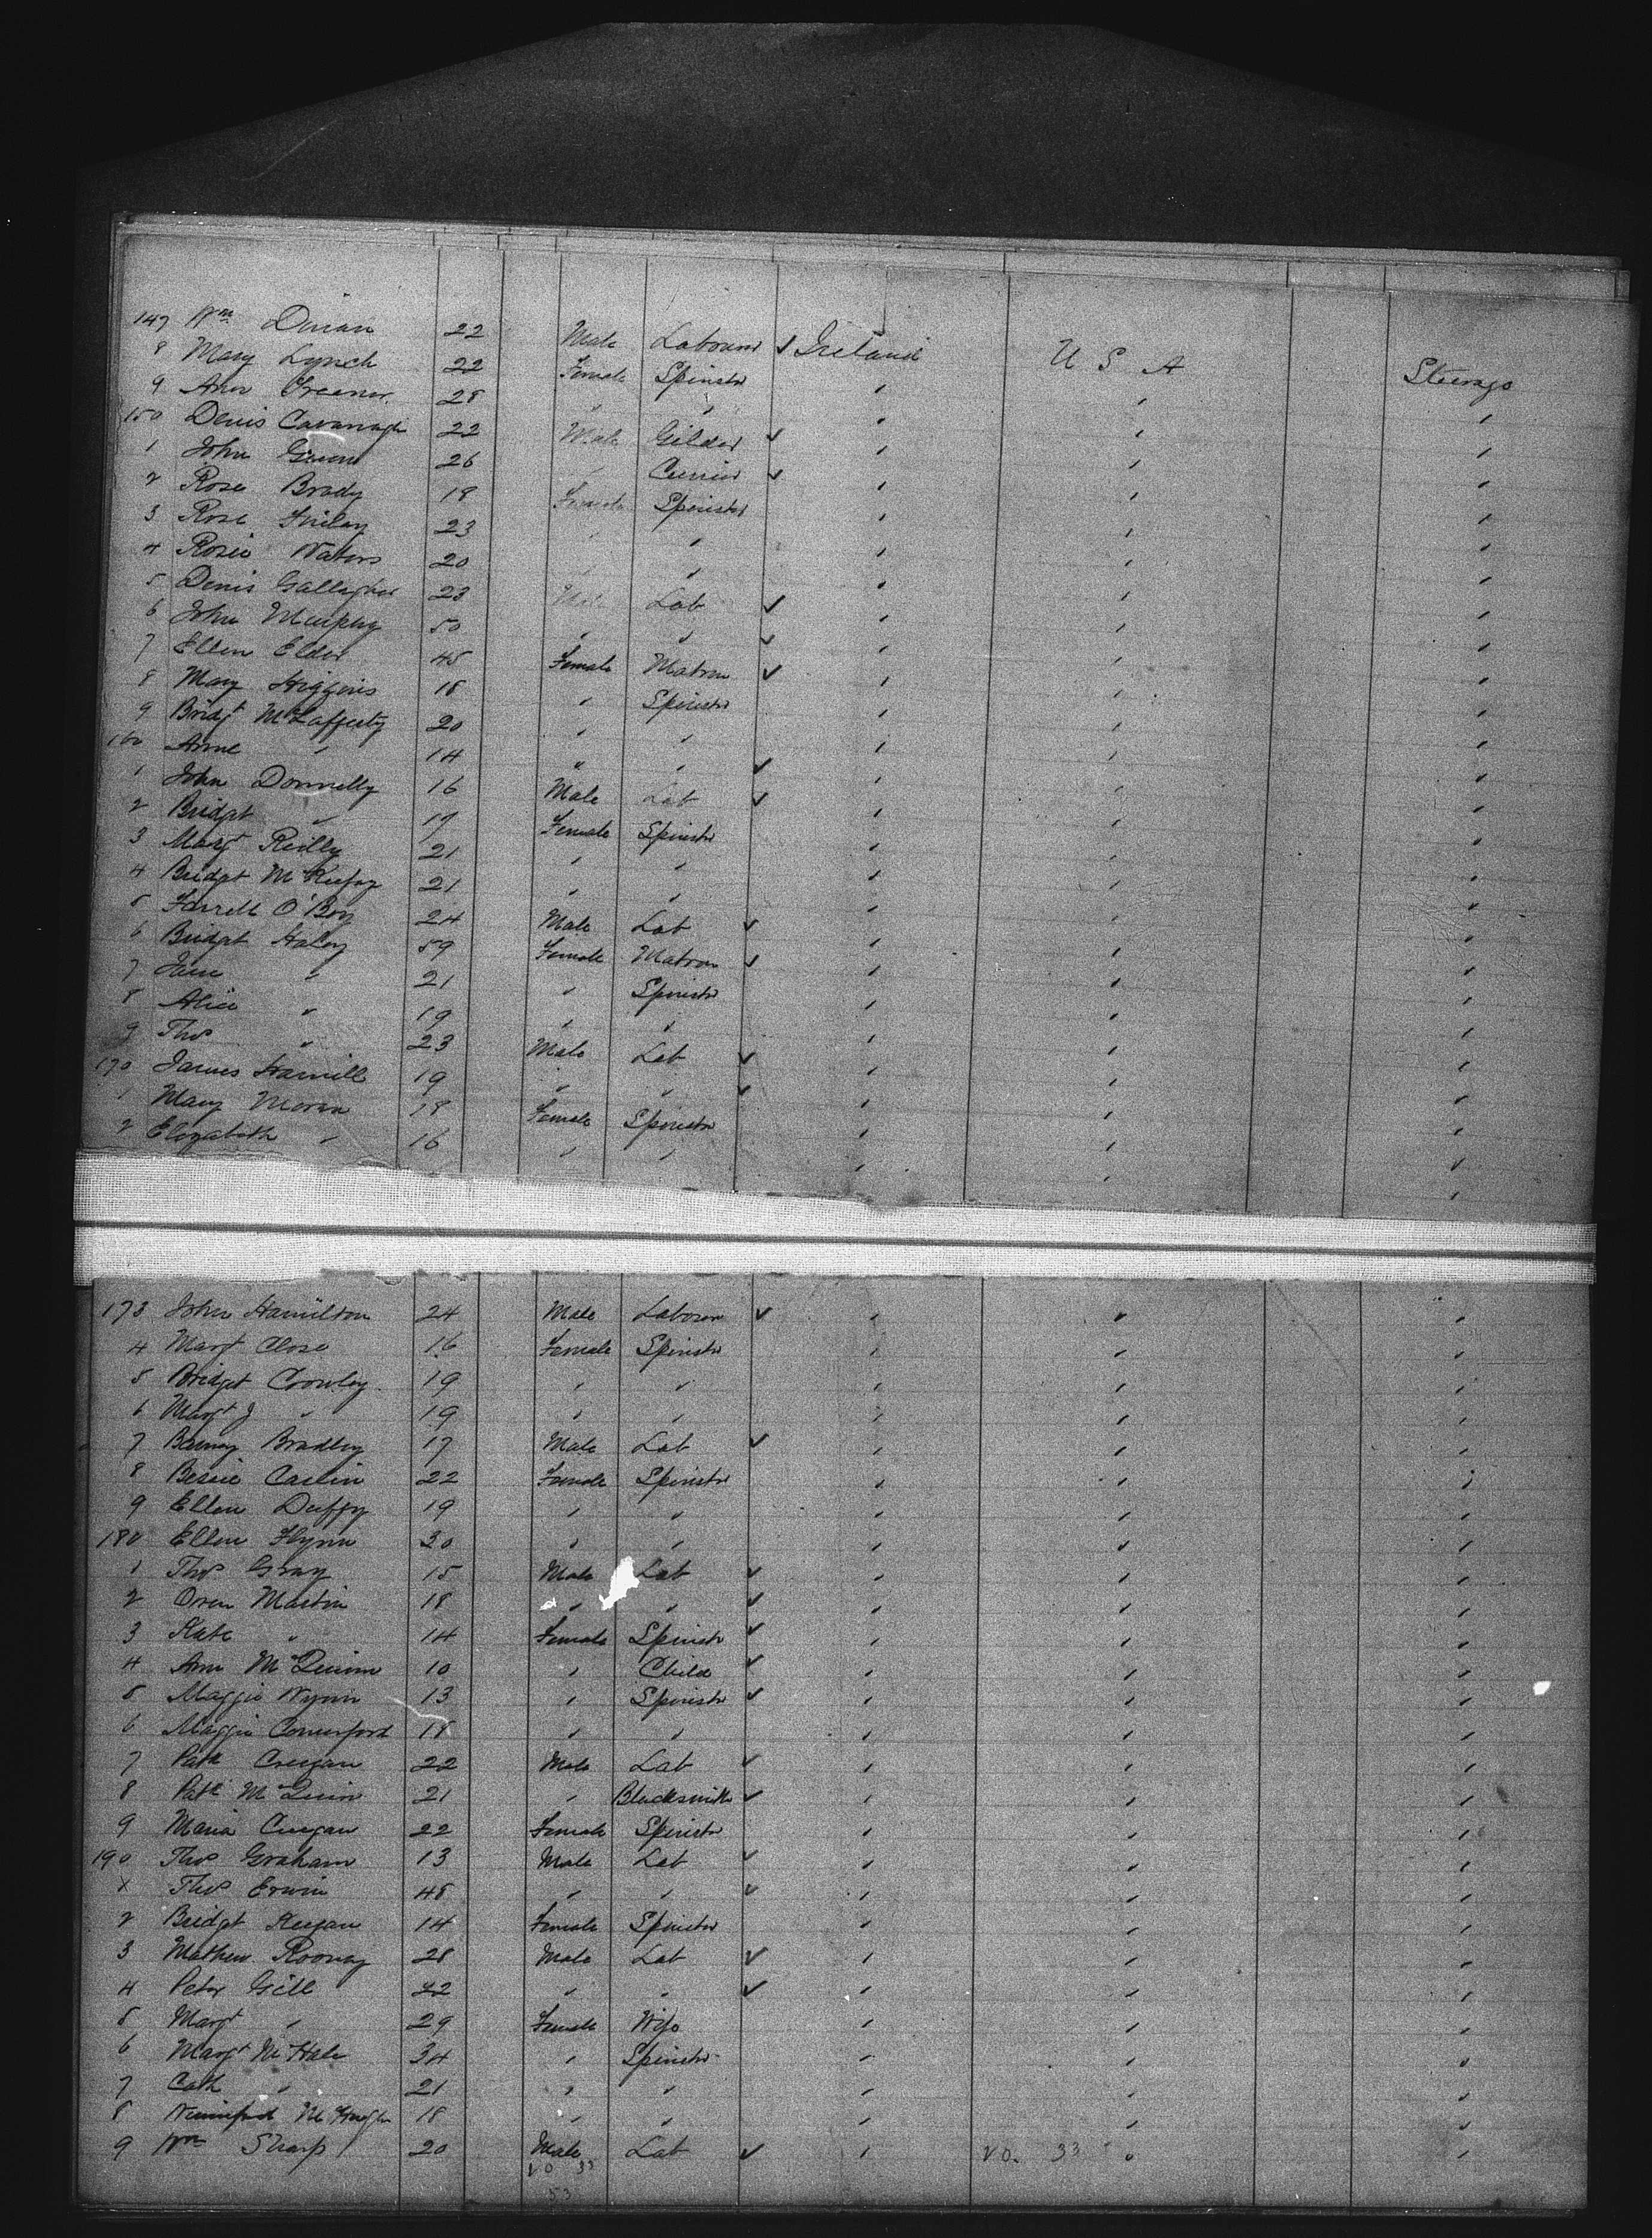 147 Wm Dinan 22 Male Labourer ✓ Ireland U S A Steerage
8 Mary Lynch 22 Female Spinster " " "
9 Ann Greener 28 " " " " "
150 Denis Cavanagh 22 Male Gilder ✓ " " "
1 John Green 26 " Currier ✓ " " "
2 Rose Brady 18 Female Spinster " " "
3 Rose Finlay 23 " " " " "
4 Rosie Waters 20 " " " " "
5 Denis Gallagher 23 Male Lab ✓ " " "
6 John Murphy 50 " " ✓ " " "
7 Ellen Elder 45 Female Matron ✓ " " "
8 Mary Higgins 18 " Spinster " " "
9 Bridgt McLafferty 20 " " " " "
160 Anne " 14 " " ✓ " " "
1 John Donnelly 16 Male Lab ✓ " " "
2 Bridget " 17 Female Spinstr " " "
3 Margt Reilly 21 " " " " "
4 Bridgt 21 " " " " "
5 Farrell O'Boy 24 Male Lab ✓ " " "
6 Bridgt Haley 59 Female Matron ✓ " " "
7 Jane " 21 " Spinstr " " "
8 Alice " 19 " " " " "
9 Thos " 23 Male Lab ✓ " " "
170 James Hamill 19 " " ✓ " " "
1 Mary Moran 18 Female Spinstr " " "
2 Elizabeth " 16 " " " " "
173 John Hamilton 24 Male Laborer ✓ " " "
4 Margt Close 16 Female Spinstr " " "
5 Bridget Crowley 19 " " " " "
6 Margt J " 19 " " " " "
7 Barney Bradley 17 Male Lab ✓ " " "
8 Bessie Carlin 22 Female Spinstr " " "
9 Ellen Duffy 19 " " " " "
180 Ellen Flynn 30 " " " " "
1 Thos Gray 15 Male Lab ✓ " " "
2 Owen Martin 18 " " ✓ " " "
3 Kate " 14 Female Spinstr ✓ " " "
4 Ann McQuinn 10 " Child ✓ " " "
5 Maggie Wynn 13 " Spinstr ✓ " " "
6 Maggie Comerford 18 " " " " "
7 Patk Creegan 22 Male Lab ✓ " " "
8 Patk McQuin 21 " Blacksmith ✓ " " "
9 Maria Creegan 22 Female Spinstr " " "
190 Thos Graham 13 Male Lab ✓ " " "
x Thos Erwin 48 " " ✓ " " "
2 Bridgt Keegan 14 Female Spinster " " "
3 Mathew Rooney 28 Male Lab ✓ " " "
4 Peter Gill 32 " " ✓ " " "
5 Margt " 29 Female Wife " " "
6 Margt McHale 34 " Spinstr " " "
7 Cath " 21 " " " " "
8 McHugh 18 " " " " "
9 Wm Sharp 20 Male Lab ✓ " " "
20 33 20. 33
53